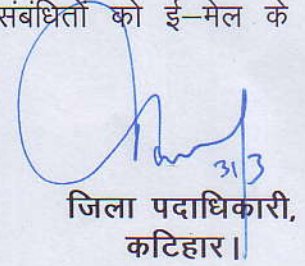 संबंधितों को ई–मेल के
31/3
जिला पदाधिकारी,
कटिहार।